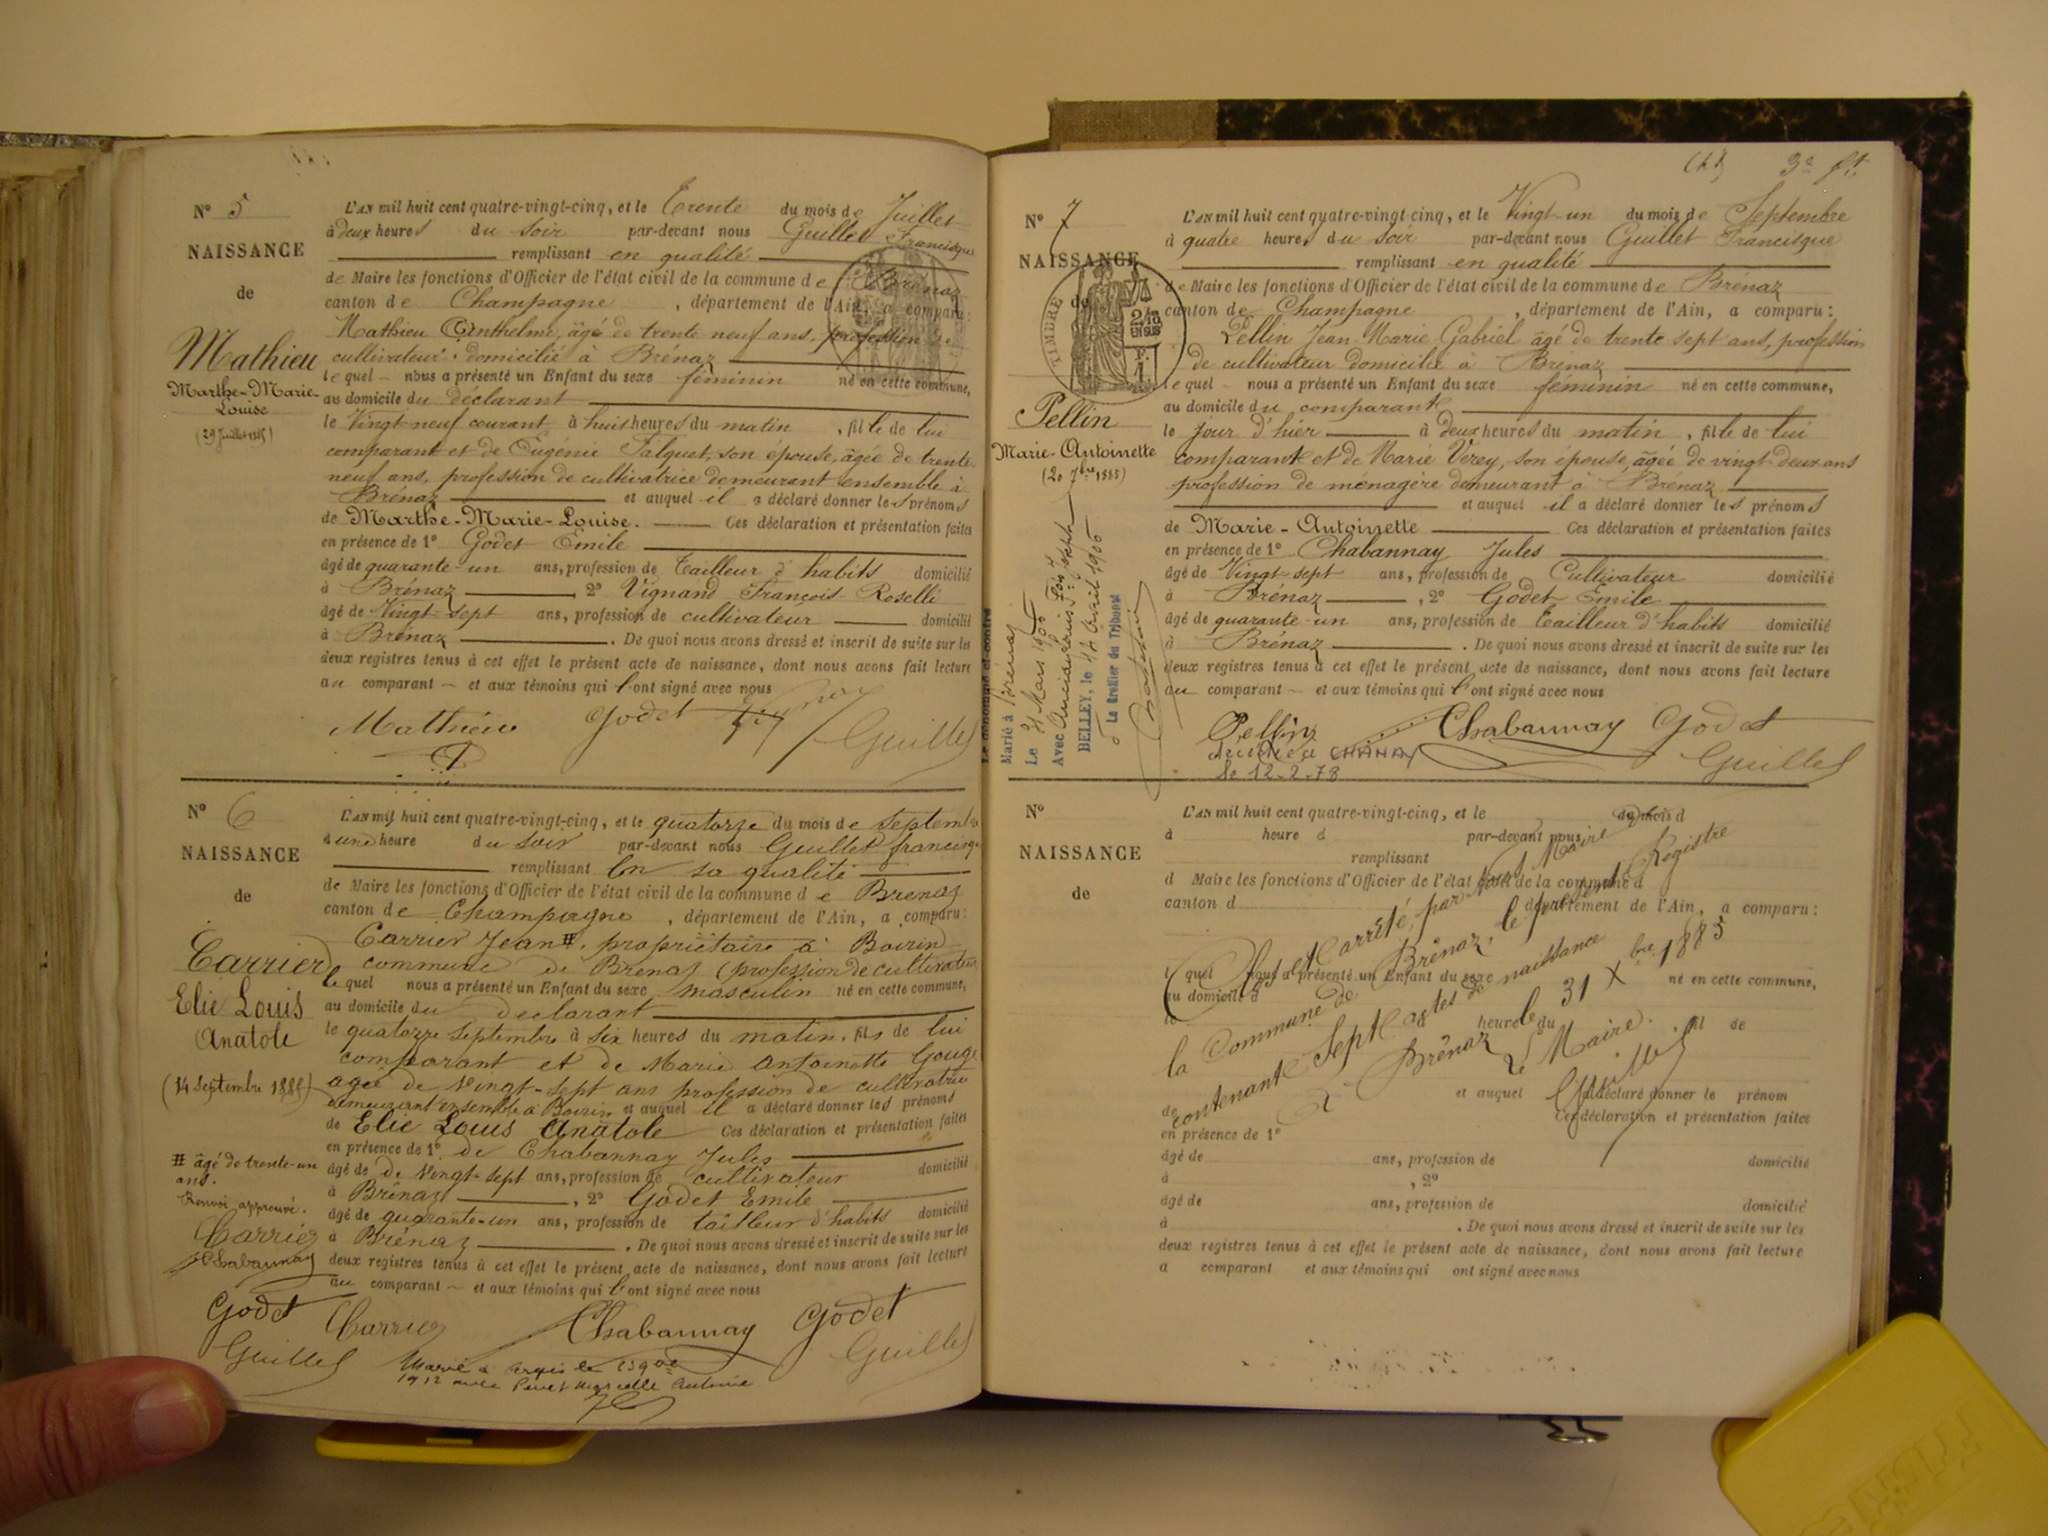 N° 5
NAISSANCE
de
Mathieu
Marthe-Marie-
Louise
(29 Juillet 1885)
L'AN mil huit cent quatre-vingt-cinq, et le Trente du mois de Juillet
à deux heures du soir par-devant nous Guillet Francisque
remplissant en qualité
de Maire les fonctions d'Officier de l'état civil de la commune de Brénaz
canton de Champagne, département de l'Ain, a comparu:
Mathieu Anthelme, âgé de trente neuf ans, profession de
cultivateur domicilié à Brénaz
lequel nous a présenté un Enfant du sexe féminin né en cette commune,
au domicile du déclarant
le Vingt neuf courant à huit heures du matin, fille de lui
comparant et de Eugénie Falquet, son épouse, âgée de trente
neuf ans, profession de cultivatrice demeurant ensemble à
Brénaz et auquel il a déclaré donner les prénoms
de Marthe-Marie-Louise. Ces déclaration et présentation faites
en présence de 1° Godet Emile
âgé de quarante un ans, profession de Tailleur d'habits domicilié
à Brénaz, 2° Vignand François Roselli
âgé de Vingt-sept ans, profession de cultivateur domicilié
à Brénaz. De quoi nous avons dressé et inscrit de suite sur les
deux registres tenus à cet effet le présent acte de naissance, dont nous avons fait lecture
au comparant et aux témoins qui l'ont signé avec nous
Mathieu Godet Guillet
N° 6
NAISSANCE
de
Carrier
Elie Louis
Anatole
(14 Septembre 1885)
# âgé de trente-un
ans.
Renvoi approuvé.
Carrier
Chabannay
Godet
Guillet
L'AN mil huit cent quatre-vingt-cinq, et le quatorze du mois de septembre
à une heure du soir par-devant nous Guillet francisque
remplissant en sa qualité
de Maire les fonctions d'Officier de l'état civil de la commune de Brenaz
canton de Champagne, département de l'Ain, a comparu:
Carrier Jean #, propriétaire à Boirin
commune de Brenaz (profession de cultivateur
lequel nous a présenté un Enfant du sexe masculin né en cette commune,
au domicile du déclarant
le quatorze septembre à six heures du matin, fils de lui
comparant et de Marie Antoinette Gouge
agée de vingt-sept ans profession de cultivatrice
demeurant ensemble à Boirin et auquel il a déclaré donner les prénoms
de Elie Louis Anatole Ces déclaration et présentation faites
en présence de 1° de Chabannay Jules
âgé de de vingt-sept ans, profession de cultivateur domicilié
à Brénaz, 2° Godet Emile
âgé de quarante-un ans, profession de tailleur d'habits domicilié
à Brénaz. De quoi nous avons dressé et inscrit de suite sur les
deux registres tenus à cet effet le présent acte de naissance, dont nous avons fait lecture
au comparant et aux témoins qui l'ont signé avec nous
Carrier Chabannay Godet
Guillet
Marié à le
1912 avec
3e ft
N° 7
NAISSANCE
de
TIMBRE
Pellin
Marie-Antoinette
(20 7bre 1885)
Le dénommé ci-contre
Marié à Brénaz
Le 31 Mars 1906
Avec
BELLEY, le Avril 1906
Le Greffier du Tribunal
L'AN mil huit cent quatre-vingt-cinq, et le Vingt-un du mois de Septembre
à quatre heures du soir par-devant nous Guillet Francisque
remplissant en qualité
de Maire les fonctions d'Officier de l'état civil de la commune de Brénaz
canton de Champagne, département de l'Ain, a comparu:
Pellin Jean Marie Gabriel âgé de trente sept ans, profession
de cultivateur domicilié à Brénaz
lequel nous a présenté un Enfant du sexe féminin né en cette commune,
au domicile du comparant
le jour d'hier à deux heures du matin, fille de lui
comparant et de Marie Verey, son épouse, âgée de vingt-deux ans
profession de ménagère demeurant à Brénaz
et auquel il a déclaré donner les prénoms
de Marie-Antoinette Ces déclaration et présentation faites
en présence de 1° Chabannay Jules
âgé de Vingt-sept ans, profession de Cultivateur domicilié
à Brénaz, 2° Godet Emile
âgé de quarante-un ans, profession de Tailleur d'habits domicilié
à Brénaz. De quoi nous avons dressé et inscrit de suite sur les
deux registres tenus à cet effet le présent acte de naissance, dont nous avons fait lecture
au comparant et aux témoins qui l'ont signé avec nous
Pellin Chabannay Godet
Guillet
décédée à CHANAY
le 12-2-78
N°
NAISSANCE
de
L'AN mil huit cent quatre-vingt-cinq, et le du mois d
à heure d par-devant nous
remplissant
d Maire les fonctions d'Officier de l'état civil de la commune d
canton d département de l'Ain, a comparu:
l quel nous a présenté un Enfant du sexe né en cette commune,
au domicile d
le à heure du fil de
et auquel a déclaré donner le prénom
de Ces déclaration et présentation faites
en présence de 1°
âgé de ans, profession de domicilié
à, 2°
âgé de ans, profession de domicilié
à. De quoi nous avons dressé et inscrit de suite sur les
deux registres tenus à cet effet le présent acte de naissance, dont nous avons fait lecture
a comparant et aux témoins qui ont signé avec nous
Clos et arrêté, par nous Maire de
la Commune de Brénaz, le présent Registre
contenant Sept actes de naissance
à Brénaz le 31 Xbre 1885
Le Maire.
Guillet